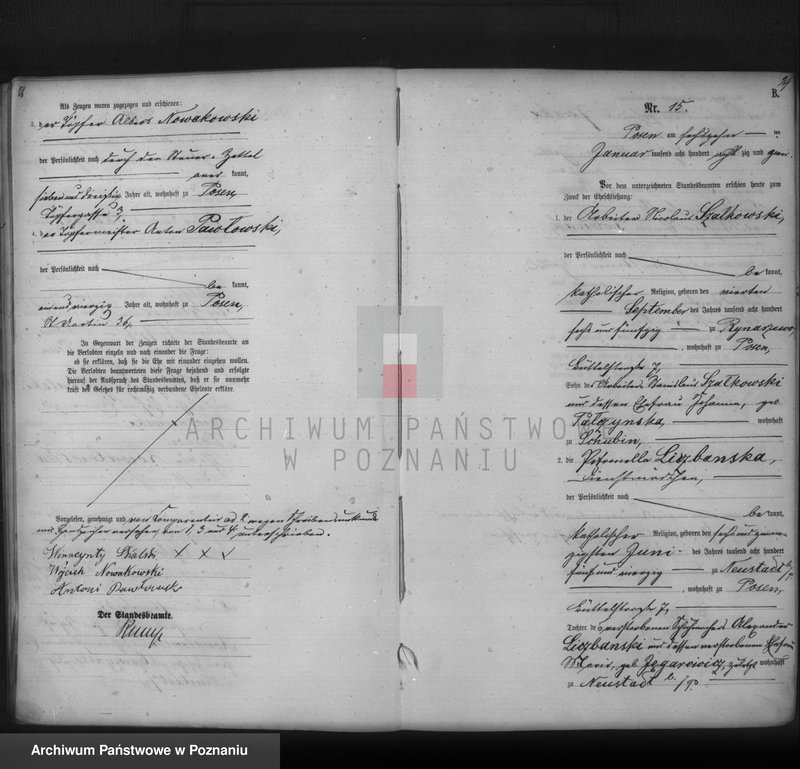 Als Zeugen waren zugezogen und erschienen:
3. der Töpfer Albert Nowakowski
der Persönlichkeit nach durch den Steuer-Zettel
aner kannt,
sieben und dreißig Jahre alt, wohnhaft zu Posen,
Töpfergasse 3
4. der Töpfermeister Anton Pawłowski,
der Persönlichkeit nach
be kannt,
ein und vierzig Jahre alt, wohnhaft zu Posen,
St Martin 36,
In Gegenwart der Zeugen richtete der Standesbeamte an
die Verlobten einzeln und nach einander die Frage:
ob sie erklären, daß sie die Ehe mit einander eingehen wollen.
Die Verlobten beantworteten diese Frage bejahend und erfolgte
hierauf der Ausspruch des Standesbeamten, daß er sie nunmehr
kraft des Gesetzes für rechtmäßig verbundene Eheleute erkläre.
Vorgelesen, genehmigt und von Comparentin ad 2 wegen Schreibensunkunde
mit Handzeichen versehen, von 1, 3 und 4 unterschrieben.
× × ×
Wojciech Nowakowski
Antoni Pawłowski
Der Standesbeamte.
B.
Nr. 15.
Posen am sechszehn ten
Januar tausend acht hundert acht zig und zwei
Vor dem unterzeichneten Standesbeamten erschien heute zum
Zweck der Eheschließung:
1. der Arbeiter Nicolaus Szałkowski,
der Persönlichkeit nach
be kannt,
katholischer Religion, geboren den vierten
September des Jahres tausend acht hundert
sechs und fünfzig zu Rynarzewo,
, wohnhaft zu Posen,
Büttelstraße 7,
Sohn des Arbeiters Stanislaus Szałkowski
und dessen Ehefrau Johanna, geb
wohnhaft
zu Schubin,
2. die Petronella Liczbanska,
Dienstmädchen,
der Persönlichkeit nach
be kannt,
katholischer Religion, geboren den sechs und zwan-
zigsten Juni des Jahres tausend acht hundert
fünf und vierzig zu Neustadt b/P.
, wohnhaft zu Posen,
Büttelstraße 7,
Tochter des verstorbenen Schuhmachers Alexander
Liczbanski und dessen verstorbenen Ehefrau
Marie, geb Zegarowicz, zuletzt wohnhaft
zu Neustadt b./P.
ARCHIWUM PAŃSTWOWE
W POZNANIU
Archiwum Państwowe w Poznaniu